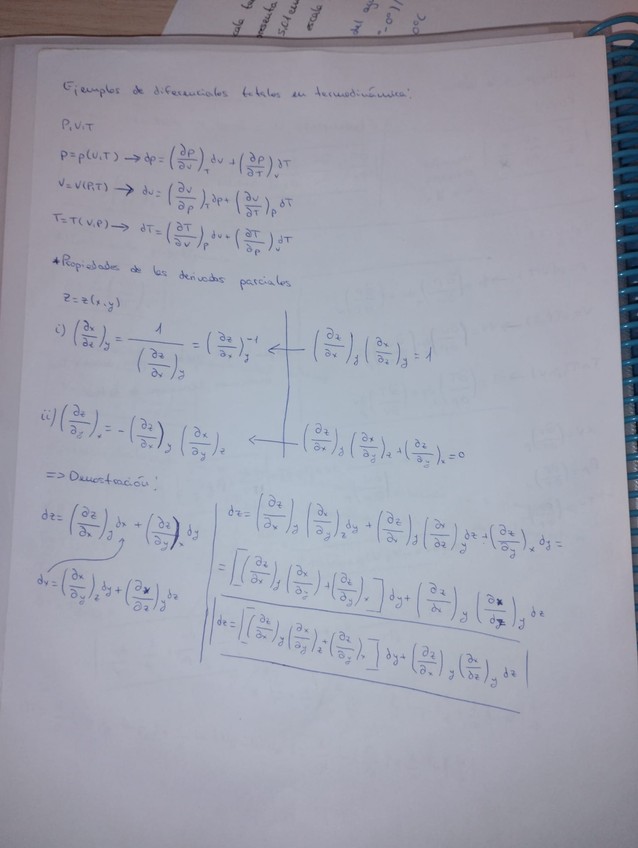 Ejemplos de diferenciales totales en termodinámica:
P, V, T
P = P(V,T) → dp = (∂p/∂v)_T dv + (∂p/∂T)_v dT
V = V(P,T) → dv = (∂v/∂p)_T dp + (∂v/∂T)_p dT
T = T(V,P) → dT = (∂T/∂v)_p dv + (∂T/∂p)_v dT
* Propiedades de las derivadas parciales
z = z(x,y)
i) (∂x/∂z)_y = 1/(∂z/∂x)_y = (∂z/∂x)_y^-1 ← (∂z/∂x)_y (∂x/∂z)_y = 1
ii) (∂z/∂y)_x = -(∂z/∂x)_y (∂x/∂y)_z ← (∂z/∂x)_y (∂x/∂y)_z + (∂z/∂y)_x = 0
=> Demostración:
dz = (∂z/∂x)_y dx + (∂z/∂y)_x dy
dx = (∂x/∂y)_z dy + (∂x/∂z)_y dz
dz = (∂z/∂x)_y (∂x/∂y)_z dy + (∂z/∂x)_y (∂x/∂z)_y dz + (∂z/∂y)_x dy =
= [(∂z/∂x)_y (∂x/∂y) + (∂z/∂y)_x] dy + (∂z/∂x)_y (∂x/∂z)_y dz
dz = [(∂z/∂x)_y (∂x/∂y)_z + (∂z/∂y)_x] dy + (∂z/∂x)_y (∂x/∂z)_y dz